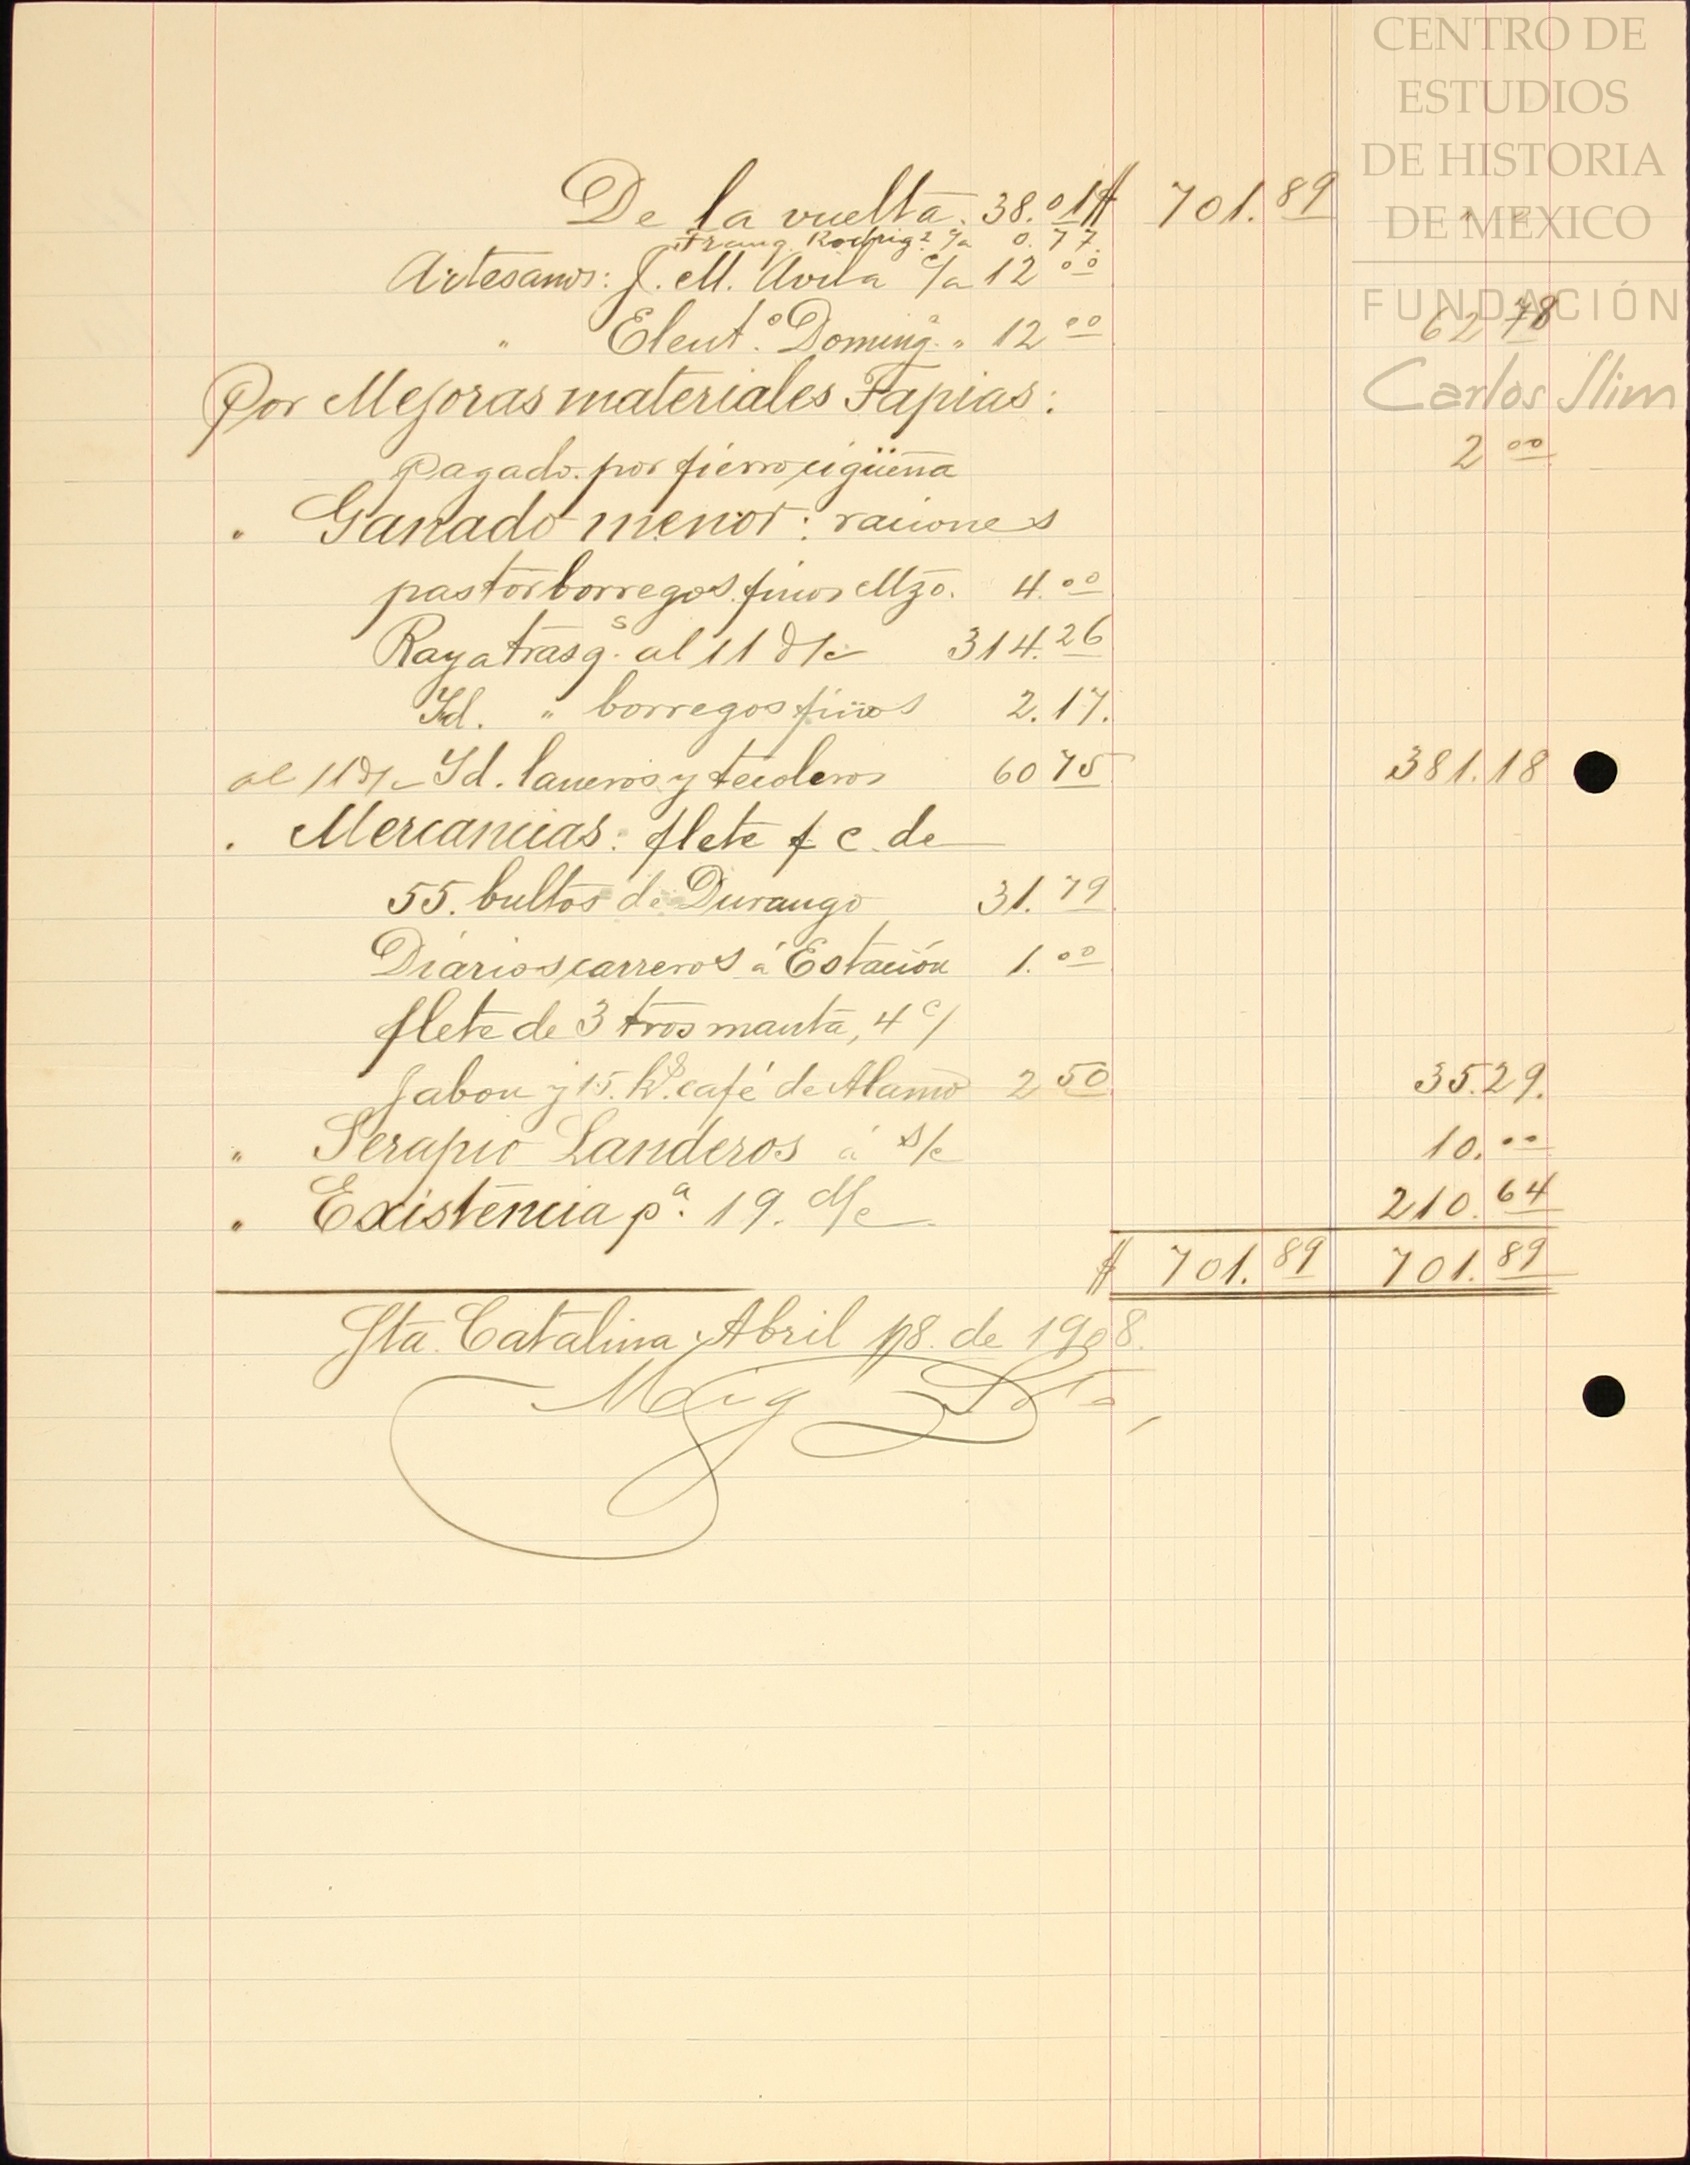 CENTRO DE
ESTUDIOS
DE HISTORIA
DE MEXICO
FUNDACIÓN
Carlos Slim
De la vuelta. 38.01 $ 701.89
Franq. Rodrig.z c/a 0.77.
Artesanos: J. M. Avila c/a 12 00
" Eleut.o Doming.a " 12 00 62 78
Por Mejoras materiales Tapias:
Pagado por fierro cigüeña 2 00
" Ganado menor: raciones
pastor borregos finos Mzo. 4.00
Raya trasq.s al 11 d/c 314.26
Id. " borregos finos 2.17.
al 11 d/c Id. laneros y tecoleros 60 75 381.18
" Mercancias: flete f c. de
55. bultos de Durango 31.79
Diarios carreros á Estación 1.00
flete de 3 tros manta, 4 c/
Jabon y 15. ks. café de Alamo 2 50 35.29.
" Serapio Landeros á s/c 10.00
" Existencia p.a 19. d/c 210.64
$ 701.89 701.89
Sta. Catalina Abril 18. de 1908.
Mig